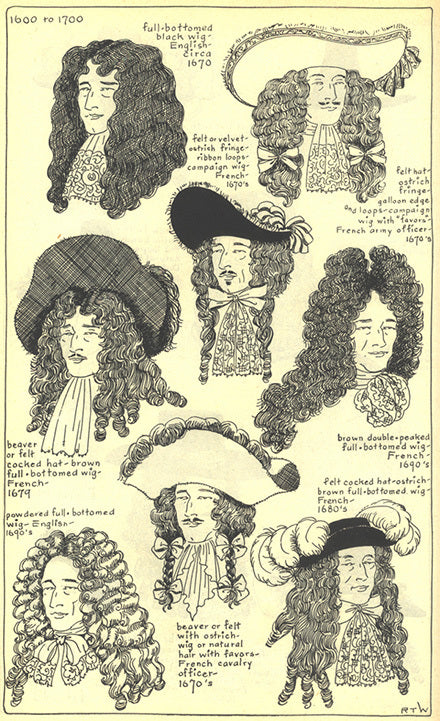 1600 to 1700
full-bottomed
black wig-
English-
circa
1670
felt or velvet-
ostrich fringe-
ribbon loops-
campaign wig-
French-
1670's
felt hat-
ostrich
fringe-
galloon edge
and loops-campaign
wig with "favors"-
French army officer-
1670's
beaver
or felt
cocked hat-brown
full-bottomed wig-
French-
1679
brown double-peaked
full-bottomed wig-
French-
1690's
felt cocked hat-ostrich-
brown full-bottomed wig-
French-
1680's
powdered full-bottomed
wig-English-
1690's
beaver or felt
with ostrich-
wig or natural
hair with favors-
French cavalry
officer-
1670's
RTW